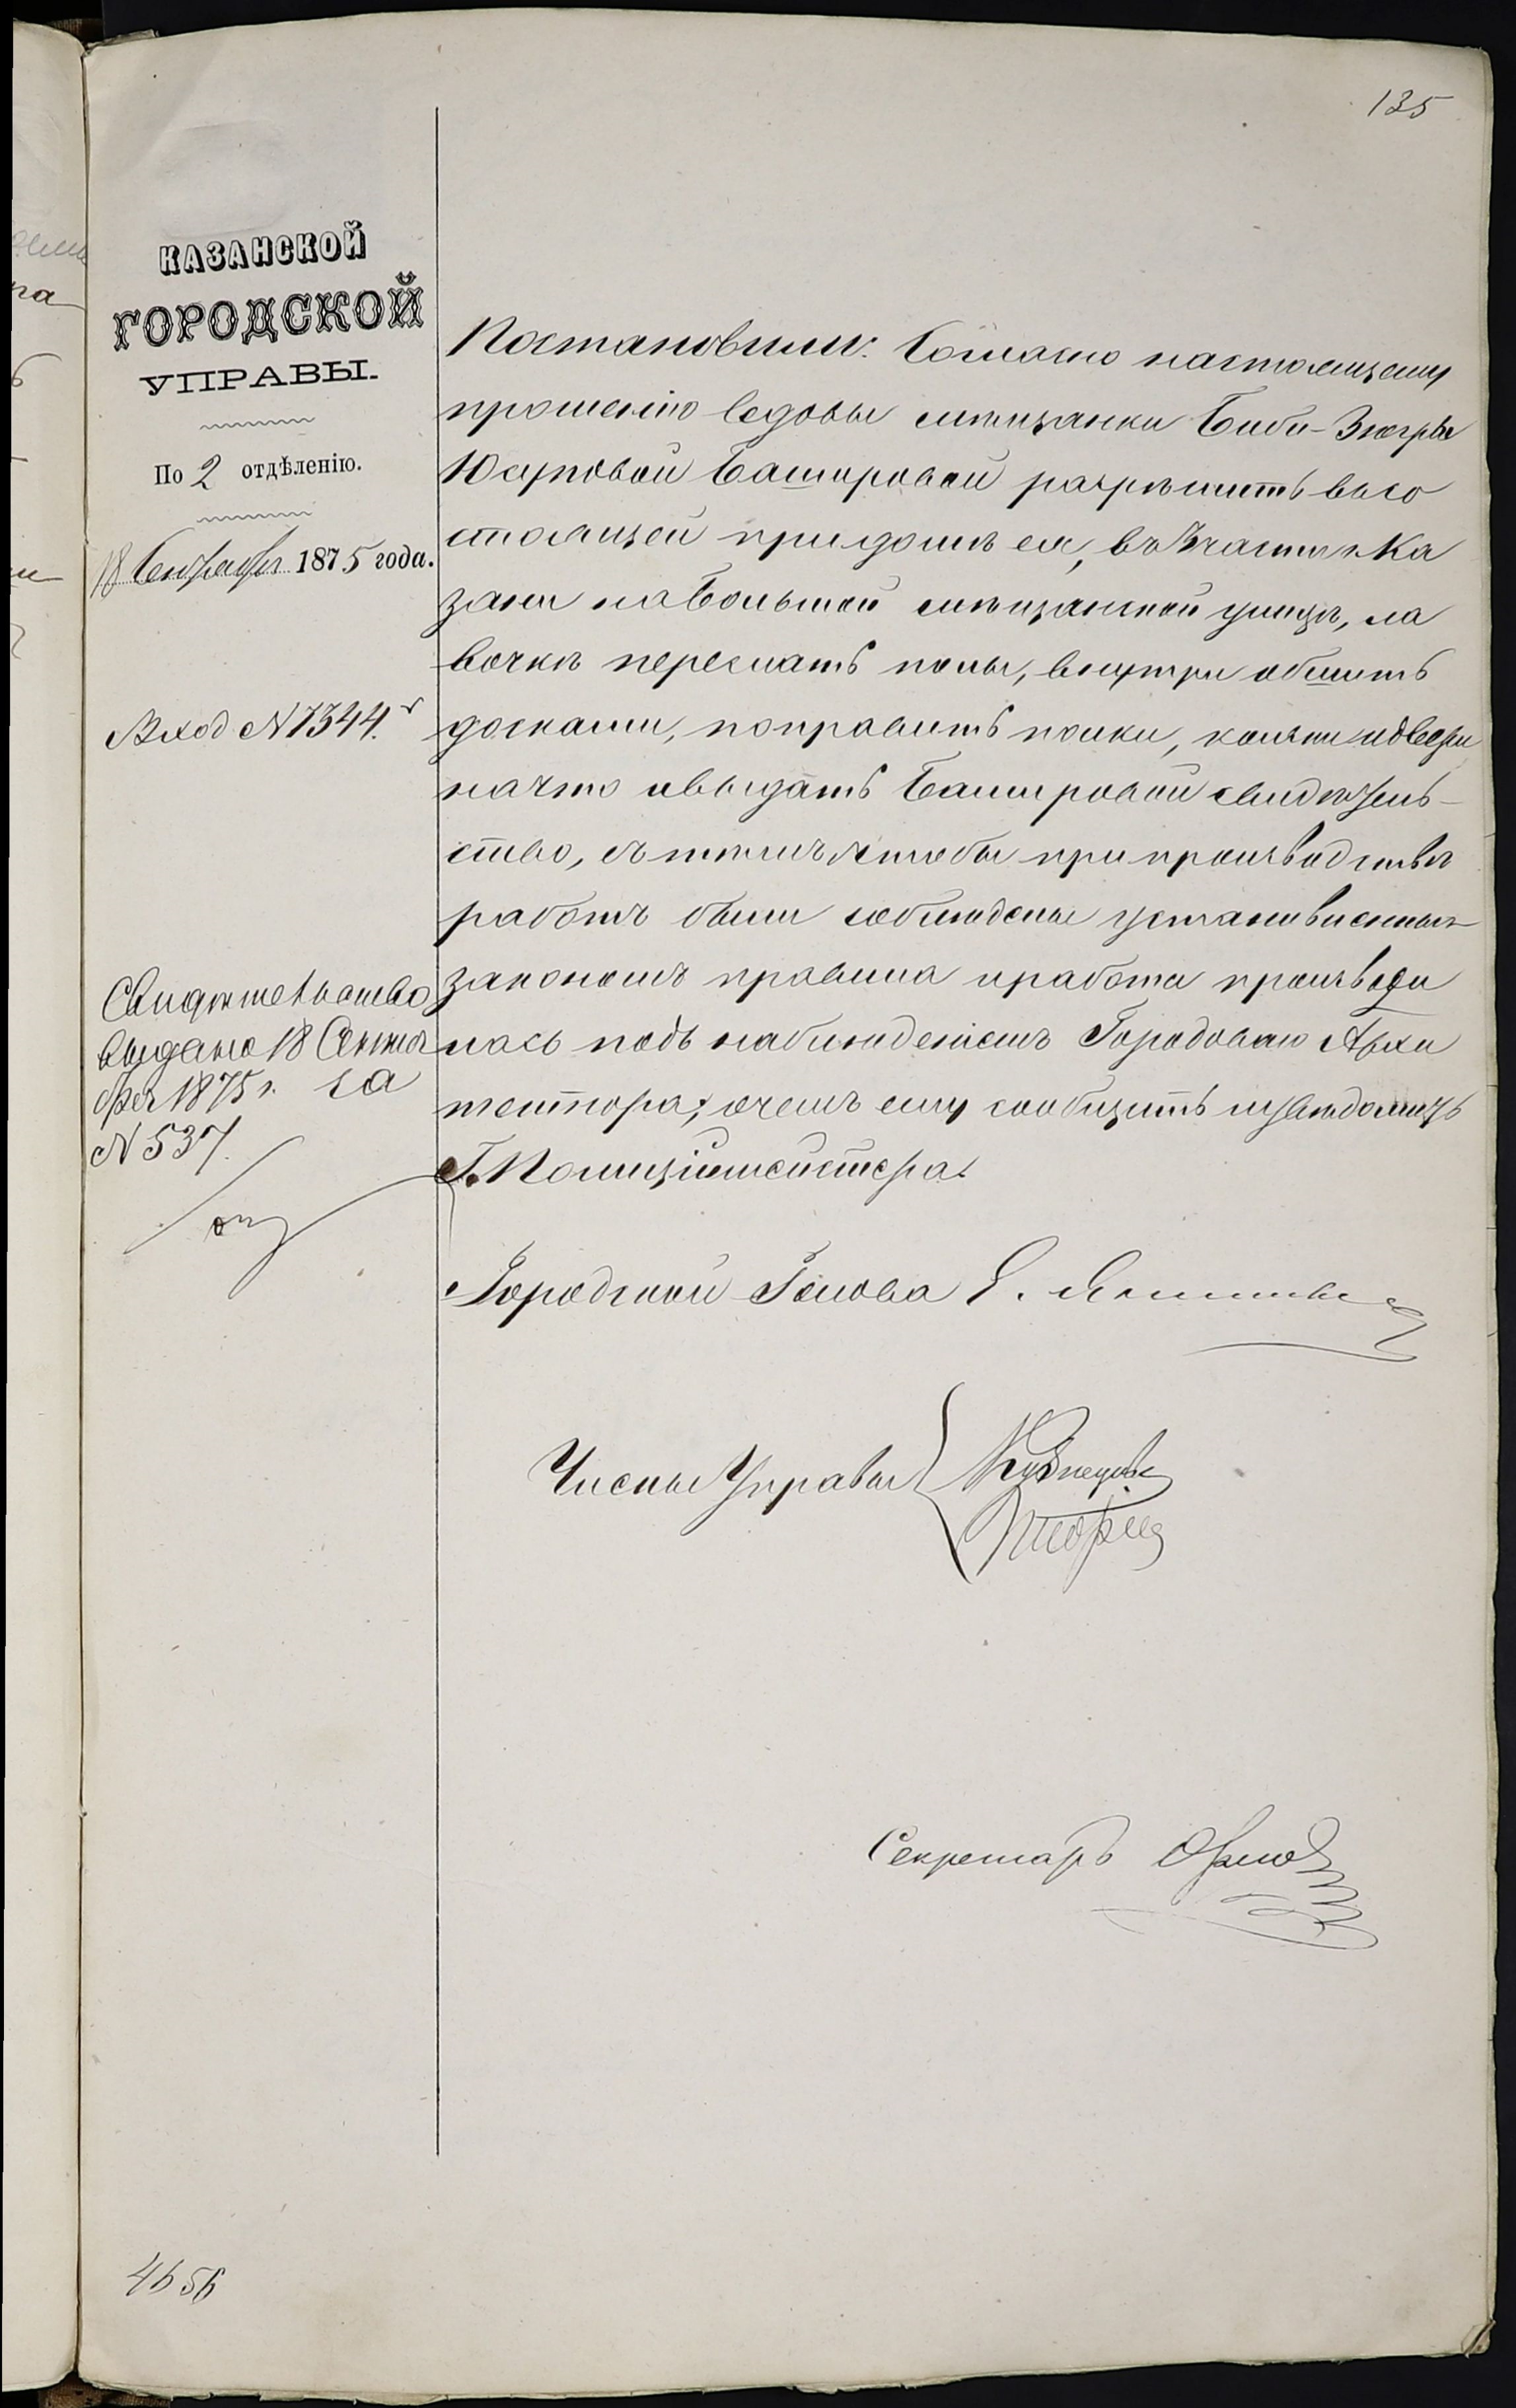 135
КАЗАНСКОЙ
ГОРОДСКОЙ
УПРАВЫ.
По 2 отдѣленію.
18 Сентября 1875 года.
Вход №7344.
Свидѣтельство
выдано 18 Сентя
бря 1875 г. за
№ 537.
Постановили: Согласно настоящему
прошенію вдовы мѣщанки Биби-Зюгры
Юсуповой Башировой разрѣшить въ со
стоящей при домѣ ея, въ части г. Ка
зани на Большой мѣщанской улицѣ, ла
вочкѣ переслать полы, внутри обшить
досками, поправить полки, и двери
на что и выдать Башировой свидѣтель-
ство, съ тѣмъ чтобы при производствѣ
работъ были соблюдены установленныя
закономъ правила и работа производи
лась подъ наблюденіемъ Городоваго Архи
тектора; о чемъ ему сообщить и увѣдомить
Г. Полиціймейстера.
Городской Голова
Члены Управы Кузнецовъ
Секретарь Орлов
4656